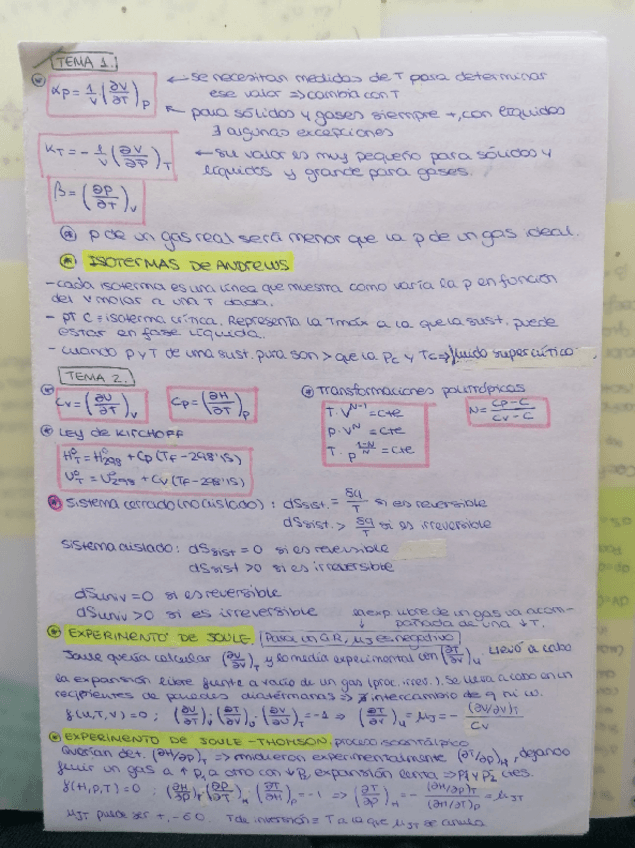 TEMA 1.
αp = 1/V (∂V/∂T)p ← se necesitan medidas de T para determinar
ese valor ⇒ cambia con T
← para sólidos y gases siempre +, con líquidos
∃ algunas excepciones
KT = - 1/V (∂V/∂p)T ← su valor es muy pequeño para sólidos y
líquidos y grande para gases.
β = (∂p/∂T)v
p de un gas real será menor que la p de un gas ideal.
ISOTERMAS DE ANDREWS
- cada isoterma es una línea que muestra como varía la p en función
del v molar a una T dada.
- pt C = isoterma crítica. Representa la Tmáx a la que la sust. puede
estar en fase líquida.
- cuando p y T de una sust. pura son > que la Pc y Tc ⇒ fluido supercrítico
TEMA 2.
Cv = (∂U/∂T)v Cp = (∂H/∂T)p
Transformaciones politrópicas
T · V^N-1 = cte
P · V^N = cte
T · P^1-N/N = cte
N = Cp - C / Cv - C
LEY de KIRCHOFF
H°T = H°298 + Cp (TF - 298'15)
U°T = U°298 + Cv (TF - 298'15)
Sistema cerrado (no aislado): dSsist. = δq/T si es reversible
dSsist. > δq/T si es irreversible
Sistema aislado: dSsist = 0 si es reversible
dSsist > 0 si es irreversible
dSuniv = 0 si es reversible
dSuniv > 0 si es irreversible
la exp. libre de un gas va acom-
pañada de una ↓T.
EXPERIMENTO DE JOULE. Para un GR, μJ es negativo
Joule quería calcular (∂U/∂V)T y lo medía experimental con (∂T/∂V)U. Llevó a cabo
la expansión libre frente a vacío de un gas (proc. irrev.). Se lleva a cabo en un
recipientes de paredes diatérmanas ⇒ ∄ intercambio de q ni w.
f(U,T,V) = 0; (∂U/∂V)T (∂T/∂U)V (∂V/∂T)U = -1 ⇒ (∂T/∂V)U = μJ = - (∂U/∂V)T / Cv
EXPERIMENTO DE JOULE - THOMSON. proceso isoentálpico
Querían det. (∂H/∂p)T ⇒ midieron experimentalmente (∂T/∂p)H, dejando
fluir un gas a ↑P1 a otro con ↓P2, expansión lenta ⇒ P1 y P2 ctes.
f(H,P,T) = 0; (∂H/∂p)T (∂p/∂T)H (∂T/∂H)p = -1 ⇒ (∂T/∂p)H = - (∂H/∂p)T / (∂H/∂T)p = μJT
μJT puede ser +, - ó 0. T de inversión = T a la que μJT se anula